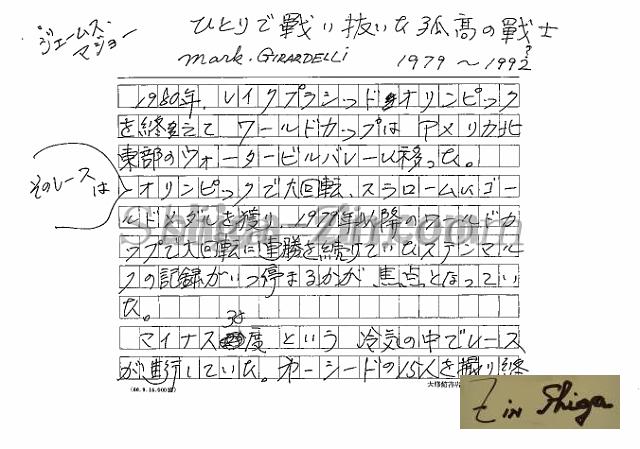 ジェームズ・マジョー
ひとりで戦い抜いた孤高の戦士
mark. GIRARDELLI 1979 〜 1992?
1980年.レイクプラシッド・オリンピック
を終えて ワールドカップは アメリカ北
東部のウォータービルバレーに移った。
そのレースは
オリンピックで大回転、スラロームにゴー
ルドメダルを獲り 1979年以降のワールドカ
ップで大回転に連勝を続けていたステンマル
クの記録がいつ停まるかが 焦点となってい
た。
マイナス 度という 冷気の中でレース
が進行していた。第一シードの15人を撮り終
(60.9.15.000冊)
大修館書店
Z in Shiga